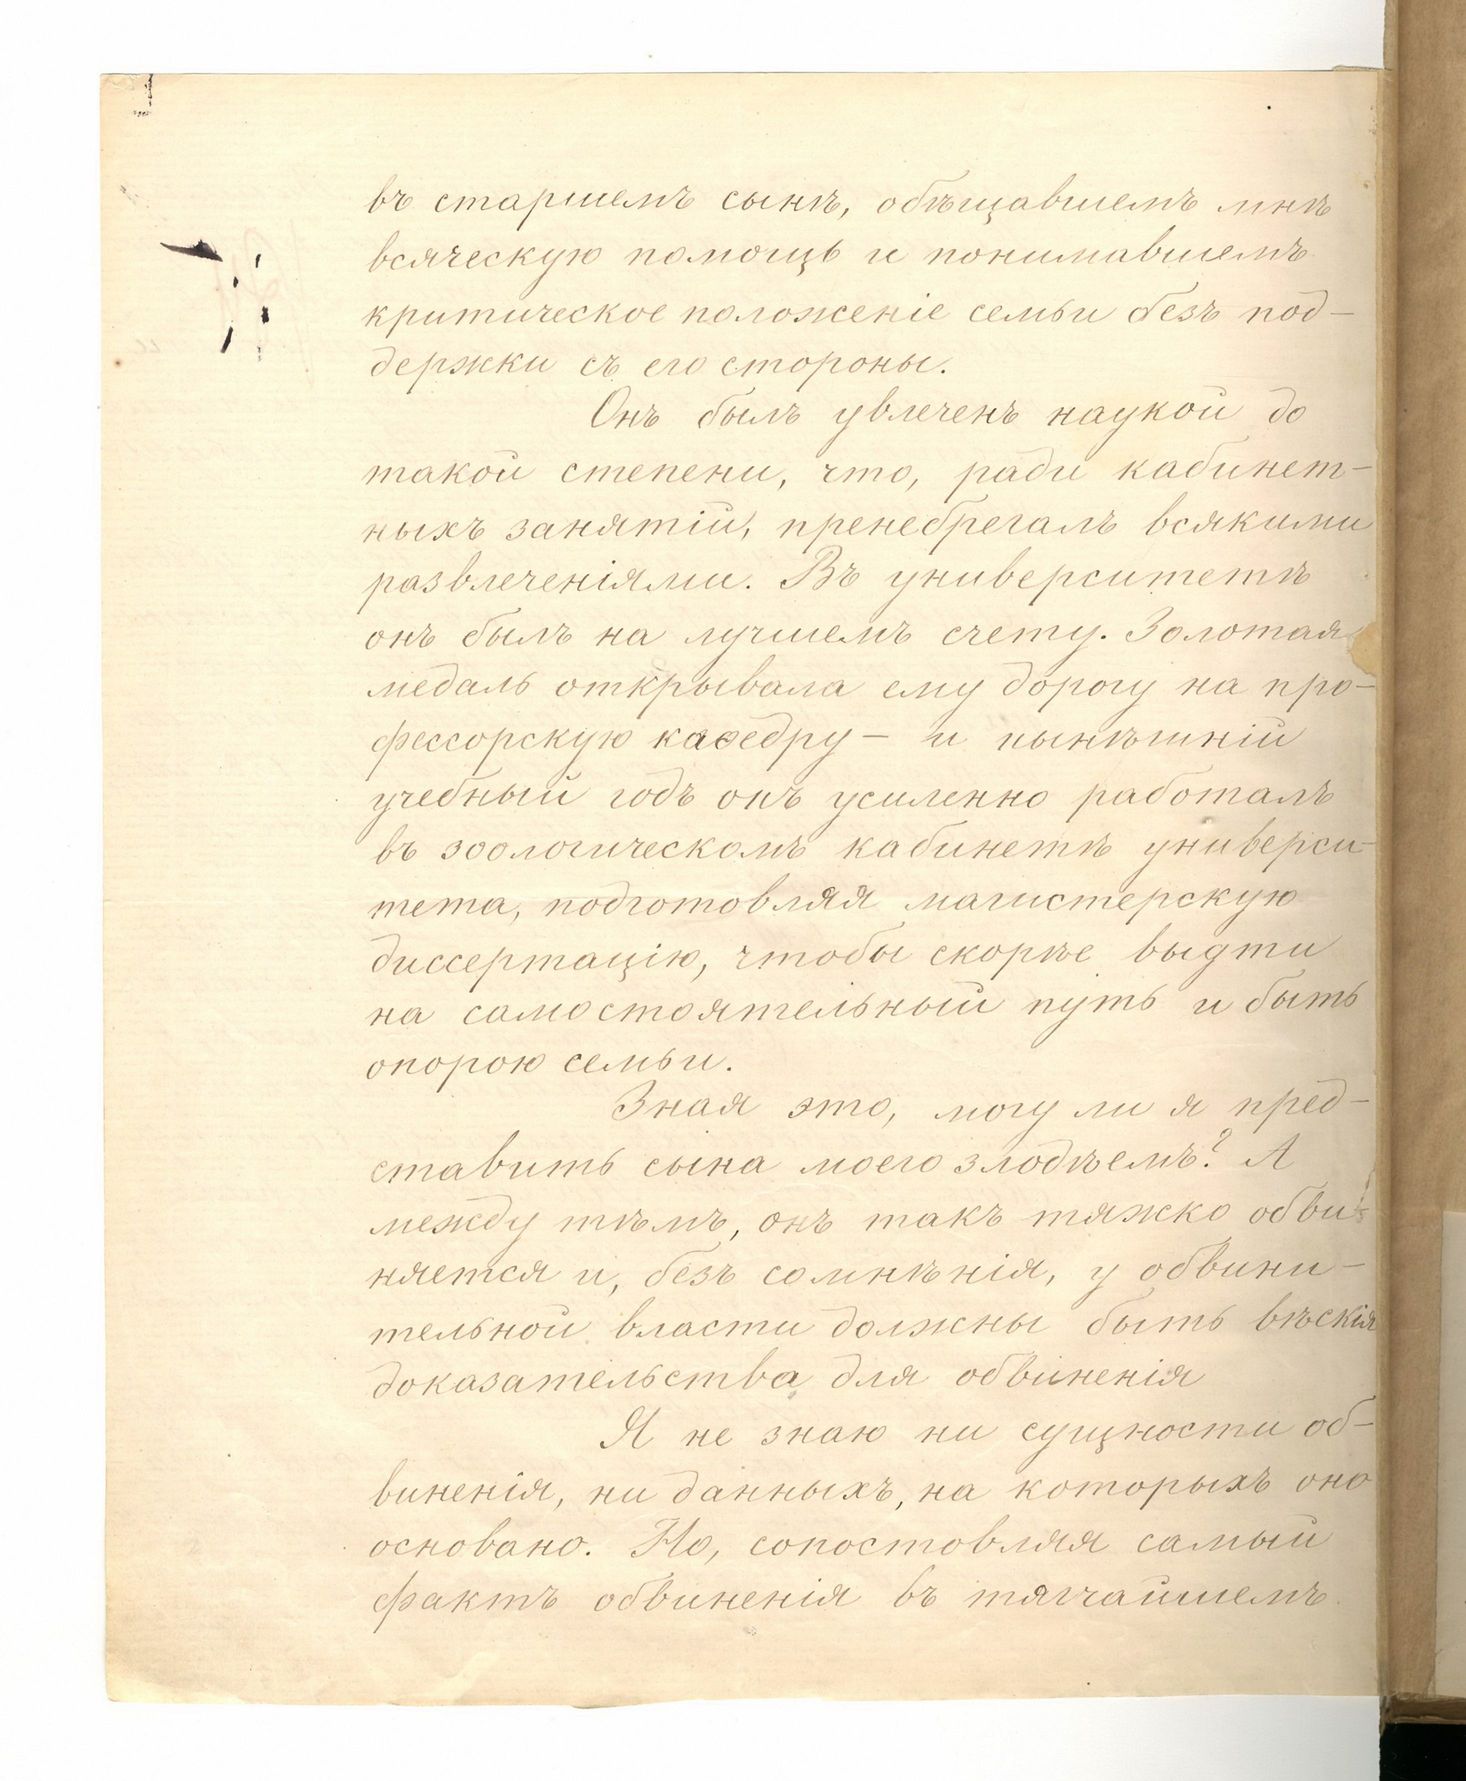 въ старшемъ сынѣ, обѣщавшемъ мнѣ
всяческую помощь и понимавшемъ
критическое положеніе семьи безъ под-
держки съ его стороны.
Онъ былъ увлеченъ наукой до
такой степени, что, ради кабинет-
ныхъ занятій, пренебрегалъ всякими
развлеченіями. Въ университетѣ
онъ былъ на лучшемъ счету. Золотая
медаль открывала ему дорогу на про-
фессорскую каѳедру — и нынѣшній
учебный годъ онъ усиленно работалъ
въ зоологическомъ кабинетѣ универси-
тета, подготовляя магистерскую
диссертацію, чтобы скорѣе выдти
на самостоятельный путь и быть
опорою семьи.
Зная это, могу ли я пред-
ставить сына моего злодѣемъ? А
между тѣмъ, онъ такъ тяжко обви-
няется и, безъ сомнѣнія, у обвини-
тельной власти должны быть вѣскія
доказательства для обвиненія
Я не знаю ни сущности об-
виненія, ни данныхъ, на которыхъ оно
основано. Но, сопостовляя самый
фактъ обвиненія въ тягчайшемъ